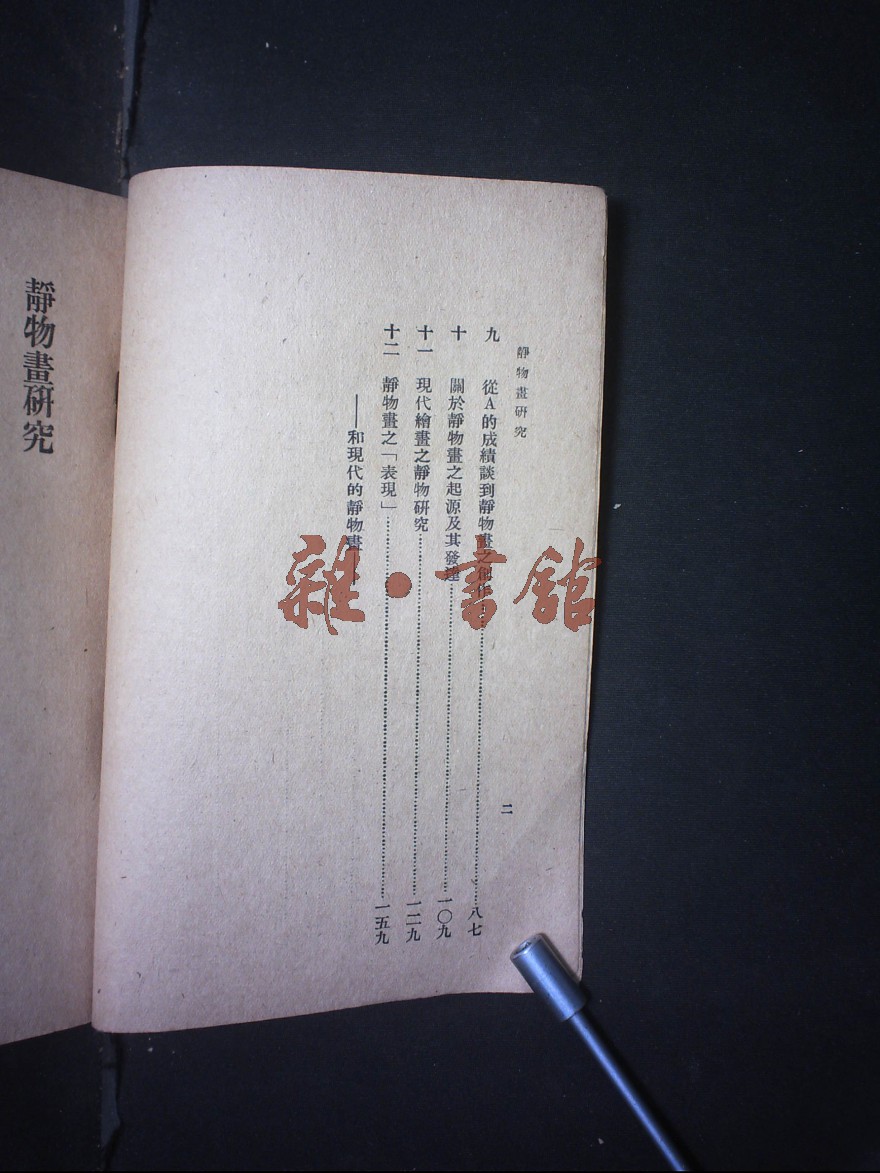 靜物畫研究
九 從A的成績談到靜物畫之創作……八七
十 關於靜物畫之起源及其發達……一〇九
十一 現代繪畫之靜物研究……一二九
十二 靜物畫之「表現」……一五九
——和現代的靜物畫——
二
靜物畫研究
雜·書館